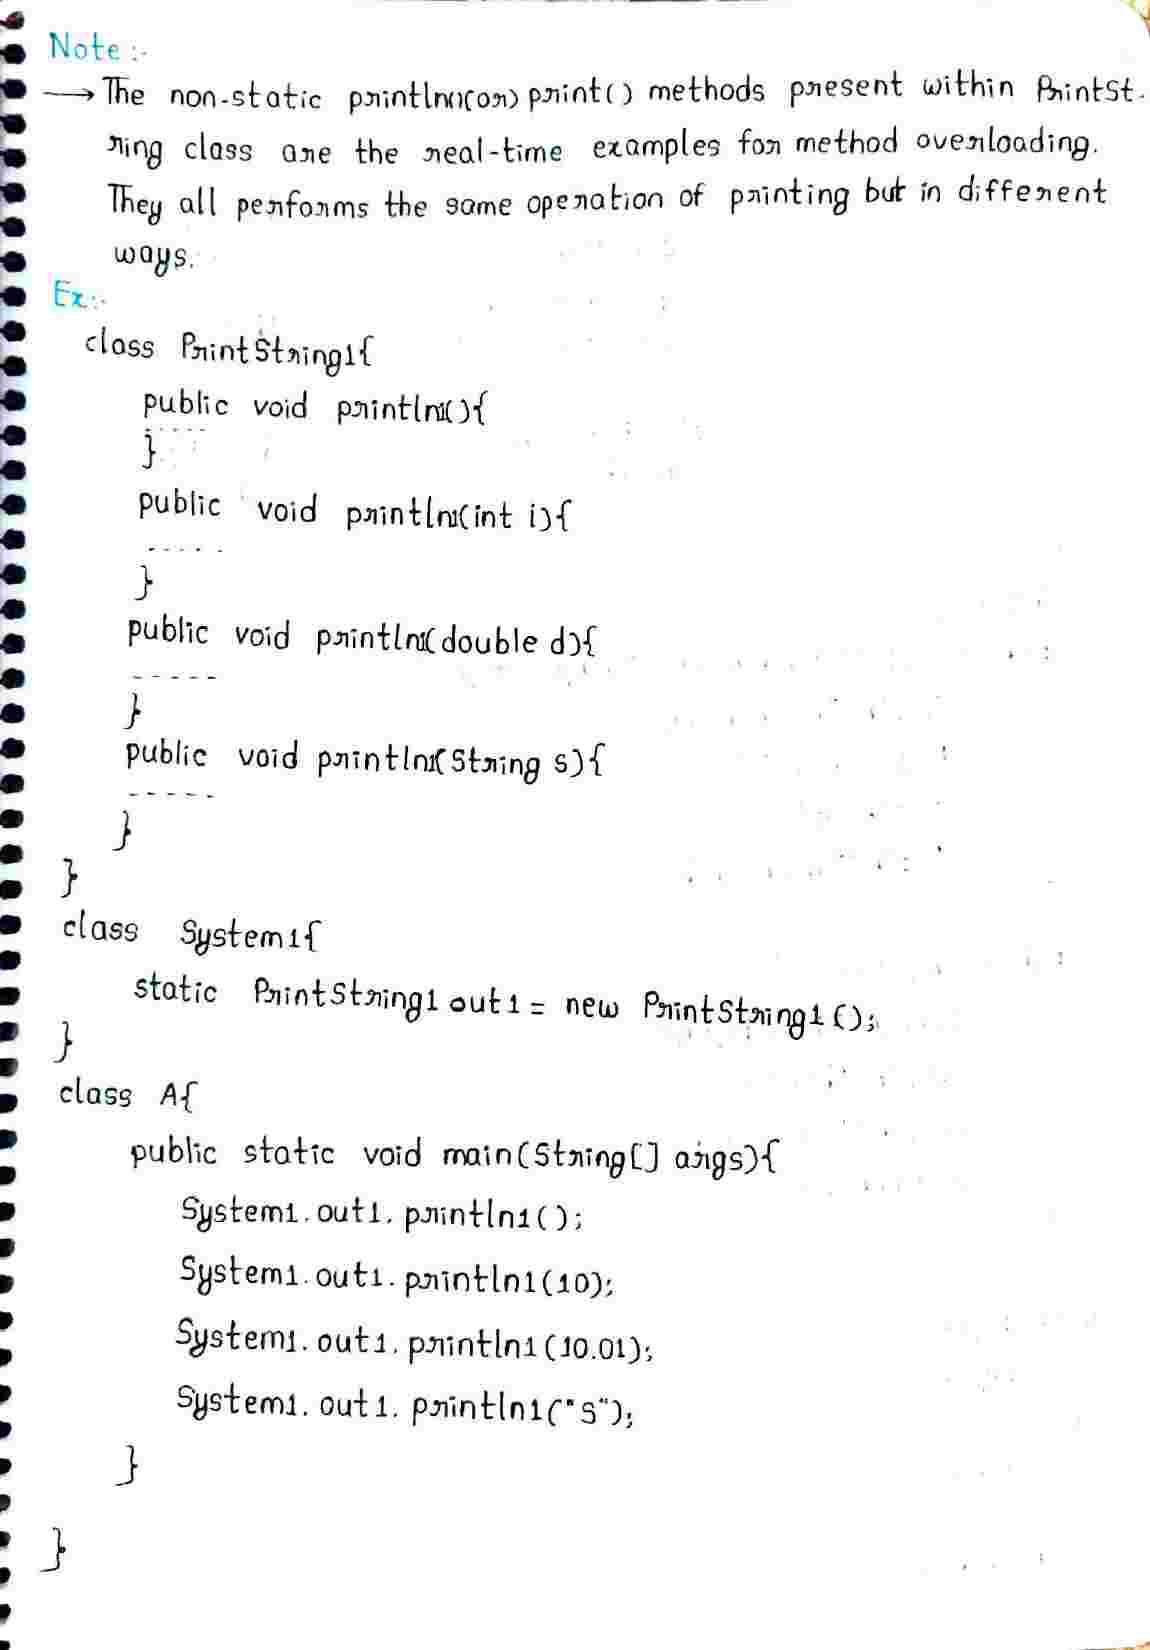 Note :-
→ The non-static println()(or) print() methods present within PrintSt-
ring class are the real-time examples for method overloading.
They all performs the same operation of printing but in different
ways.
Ex:-
class PrintString1{
public void println1(){
-----
}
public void println1(int i){
-----
}
public void println1(double d){
-----
}
public void println1(String s){
-----
}
}
class System1{
static PrintString1 out1 = new PrintString1();
}
class A{
public static void main(String[] args){
System1.out1.println1();
System1.out1.println1(10);
System1.out1.println1(10.01);
System1.out1.println1("S");
}
}